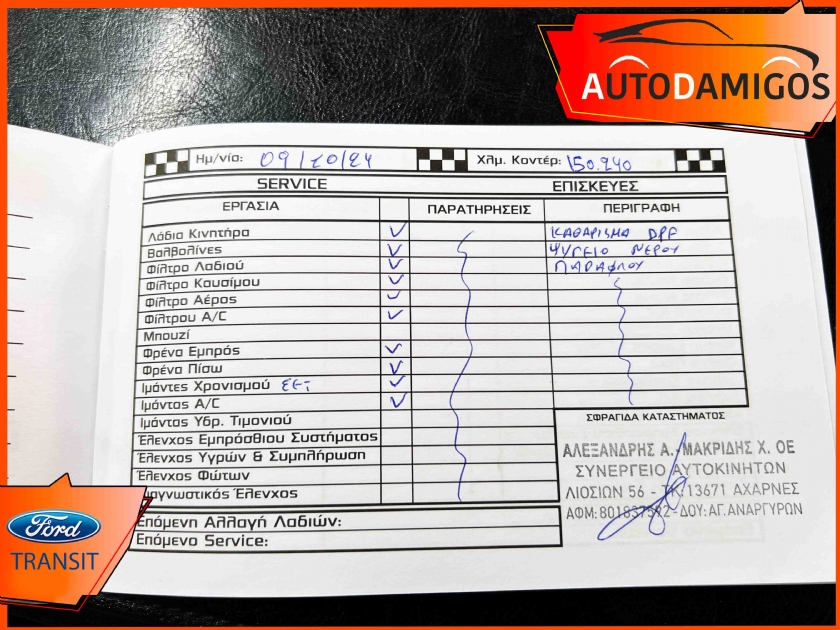 AUTODAMIGOS
Ημ/νία: 09/10/24 Χλμ. Κοντέρ: 150.240
SERVICE ΕΠΙΣΚΕΥΕΣ
ΕΡΓΑΣΙΑ ΠΑΡΑΤΗΡΗΣΕΙΣ ΠΕΡΙΓΡΑΦΗ
Λάδια Κινητήρα ✓ ΚΑΘΑΡΙΣΜΑ DPF
Βαλβολίνες ✓ ΨΥΓΕΙΟ ΝΕΡΟΥ
Φίλτρο Λαδιού ✓ ΠΑΡΑΦΛΟΥ
Φίλτρο Καυσίμου ✓
Φίλτρο Αέρος ✓
Φίλτρου A/C ✓
Μπουζί
Φρένα Εμπρός ✓
Φρένα Πίσω ✓
Ιμάντες Χρονισμού ΣΕΤ ✓
Ιμάντας A/C ✓
Ιμάντας Υδρ. Τιμονιού
Έλενχος Εμπρόσθιου Συστήματος
Έλενχος Υγρών & Συμπλήρωση
Έλενχος Φώτων
Διαγνωστικός Έλενχος
Επόμενη Αλλαγή Λαδιών:
Επόμενο Service:
ΣΦΡΑΓΙΔΑ ΚΑΤΑΣΤΗΜΑΤΟΣ
ΑΛΕΞΑΝΔΡΗΣ Α.-ΜΑΚΡΙΔΗΣ Χ. ΟΕ
ΣΥΝΕΡΓΕΙΟ ΑΥΤΟΚΙΝΗΤΩΝ
ΛΙΟΣΙΩΝ 56 - ΤΚ:13671 ΑΧΑΡΝΕΣ
ΑΦΜ:801837592-ΔΟΥ:ΑΓ.ΑΝΑΡΓΥΡΩΝ
Ford
TRANSIT